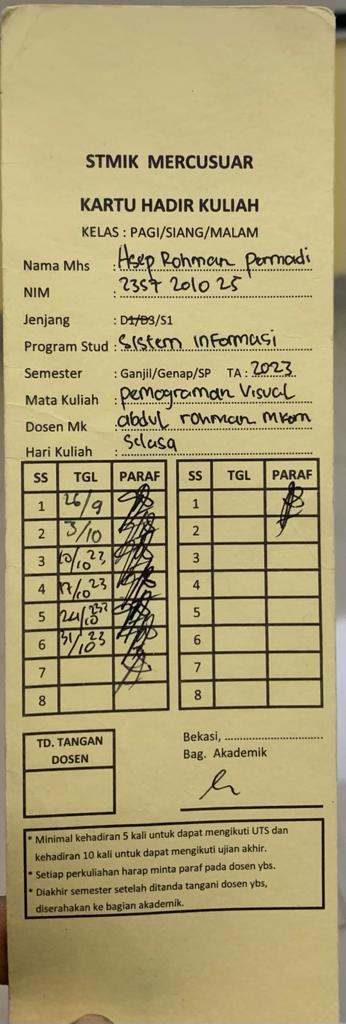 STMIK MERCUSUAR
KARTU HADIR KULIAH
KELAS : PAGI/SIANG/MALAM
Nama Mhs : Asep Rohman permadi
NIM : 2357 2010 25
Jenjang : D1/D3/S1
Program Stud : Sistem Informasi
Semester : Ganjil/Genap/SP TA : 2023
Mata Kuliah : pemograman Visual
Dosen Mk : abdul rohman M.kom
Hari Kuliah : Selasa
SS TGL PARAF SS TGL PARAF
1 26/9 1
2 3/10 2
3 10/10 23 3
4 17/10 23 4
5 24/10 5
6 31/10 23 6
7 7
8 8
TD. TANGAN
DOSEN
Bekasi, ..............................
Bag. Akademik
* Minimal kehadiran 5 kali untuk dapat mengikuti UTS dan
kehadiran 10 kali untuk dapat mengikuti ujian akhir.
* Setiap perkuliahan harap minta paraf pada dosen ybs.
* Diakhir semester setelah ditanda tangani dosen ybs,
diserahkan ke bagian akademik.